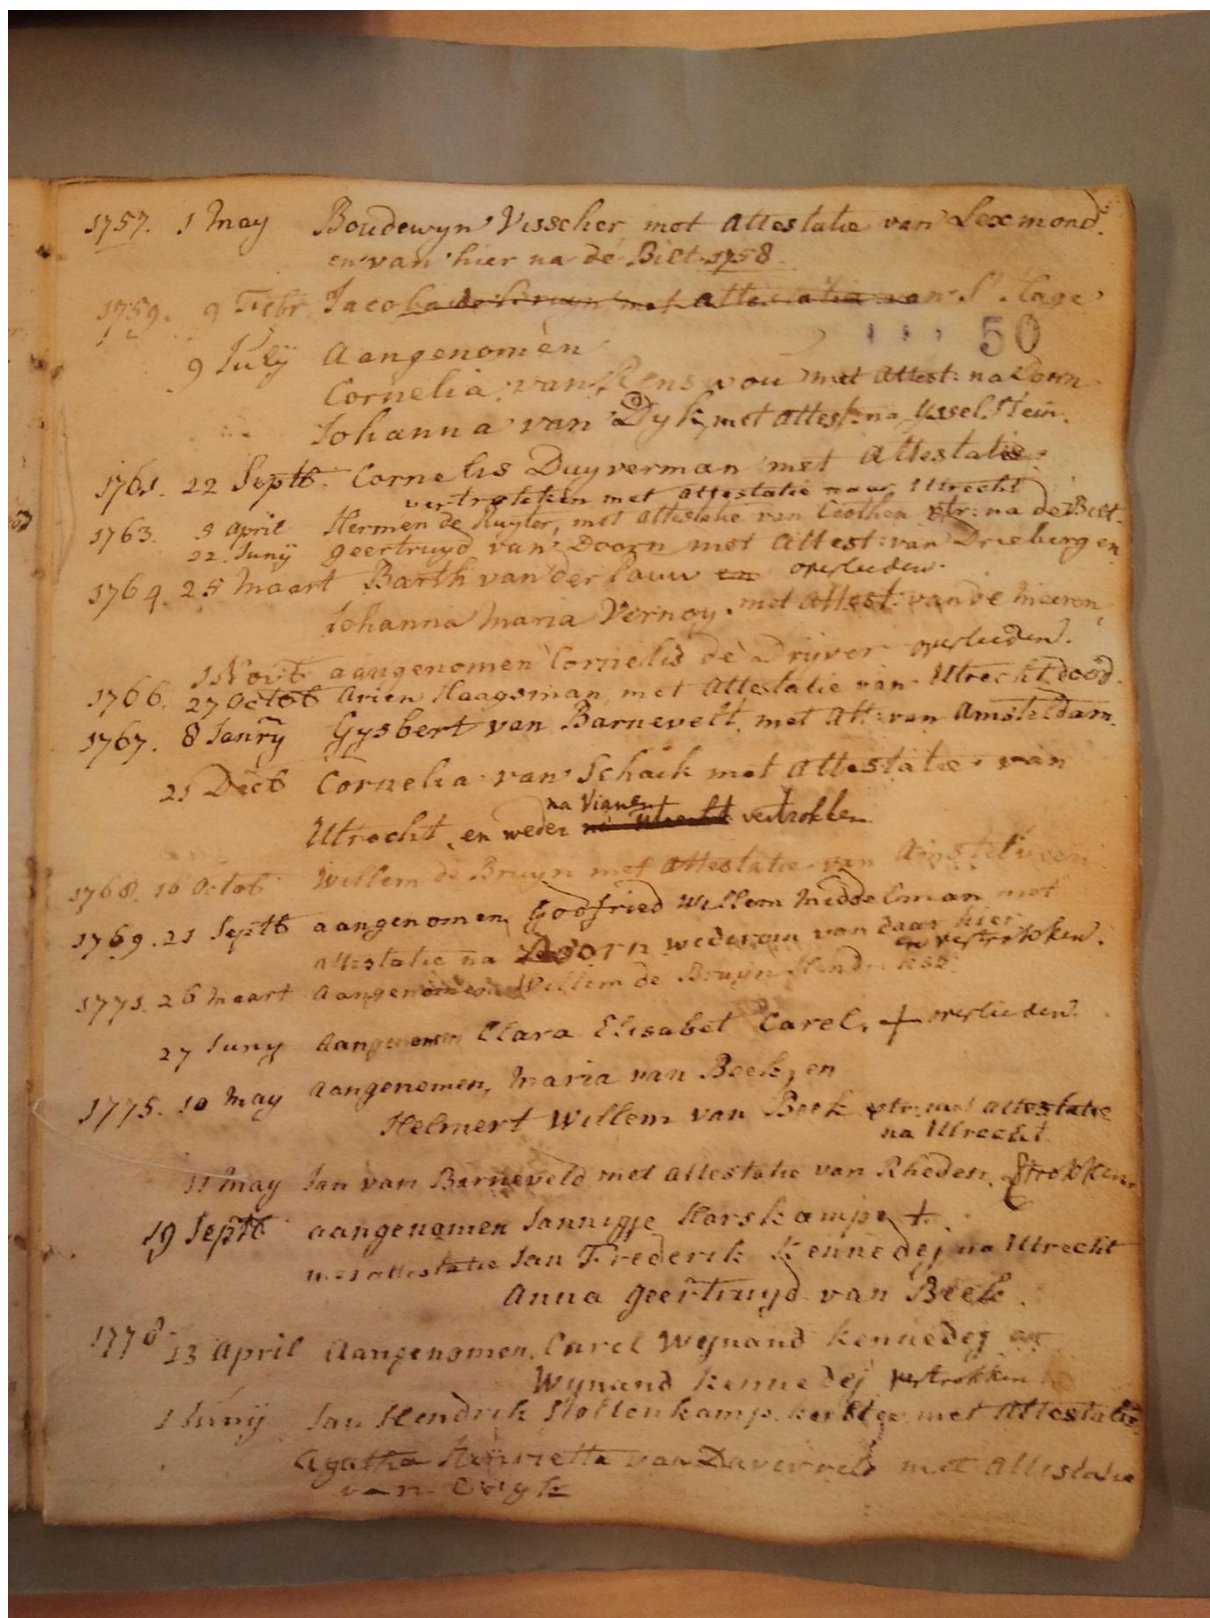 1757. 1 May Boudewyn Visscher met Attestatie van Lexmond.
en van hier na de Bilt 1758.
1759. 9 Febr Jacoba de Bruyn met attestatie van S' Hage
50
9 Julÿ Aangenomen
Cornelia van Renswou met Attest: na Doorn
Johanna van Dyk, met attest: na Ysselstein.
1761. 22 Septb. Cornelis Duyverman met Attestatie.
vertrokken met attestatie naar Utrecht
1763. 5 April Hermen de Ruyter, met attestatie van Coothen vtr: na de Bilt.
22 Junij geertruyd van Doorn met Attest: van Driebergen
1764. 25 Maart Barth van der Louw en overleeden.
Johanna Maria Vernoy. met attest: van de Meeren,
1 Novb aangenomen Cornelis de Drijver overleeden.
1766. 27 Octob Arien Haagsman met Attestatie van Utrecht dood.
1767. 8 Janry Gysbert van Barnevelt, met Att: van Amsteldam.
21 Decb Cornelia van Schaik met Attestatie van
na Vianen
Utrecht, en weder na Utrecht vertrokken
1768. 16 Octob Willem de Bruyn met Attestatie van Amstelveen
1769. 21 Septb aangenomen Godfried Willem Middelman met
attestatie na Doorn wederom van daar hier
en vertrokken.
1771. 26 Maart Aangenomen Willem de Bruyn Hendriksz
27 Juny Aangenomen Clara Elisabet Carel, + overleeden.
1775. 10 May Aangenomen, Maria van Beek, en
Helmert Willem van Beek vtr: met attestatie
na Utrecht.
11 May Jan van Barneveld met attestatie van Rheden. vtrokken
19 Septb aangenomen Jannigje Harskamp +.
met attestatie Jan Frederik Kennedej na Utrecht
Anna geertruyd van Beek.
1778. 13 April Aangenomen. Carel Wynand Kennedej en
Wynand Kennedej vertrokken
1 Junij Jan Hendrik Holtenkamp. met Attestatie
Agatha Henrietta van Daverveld met Attestatie
van Cuyk